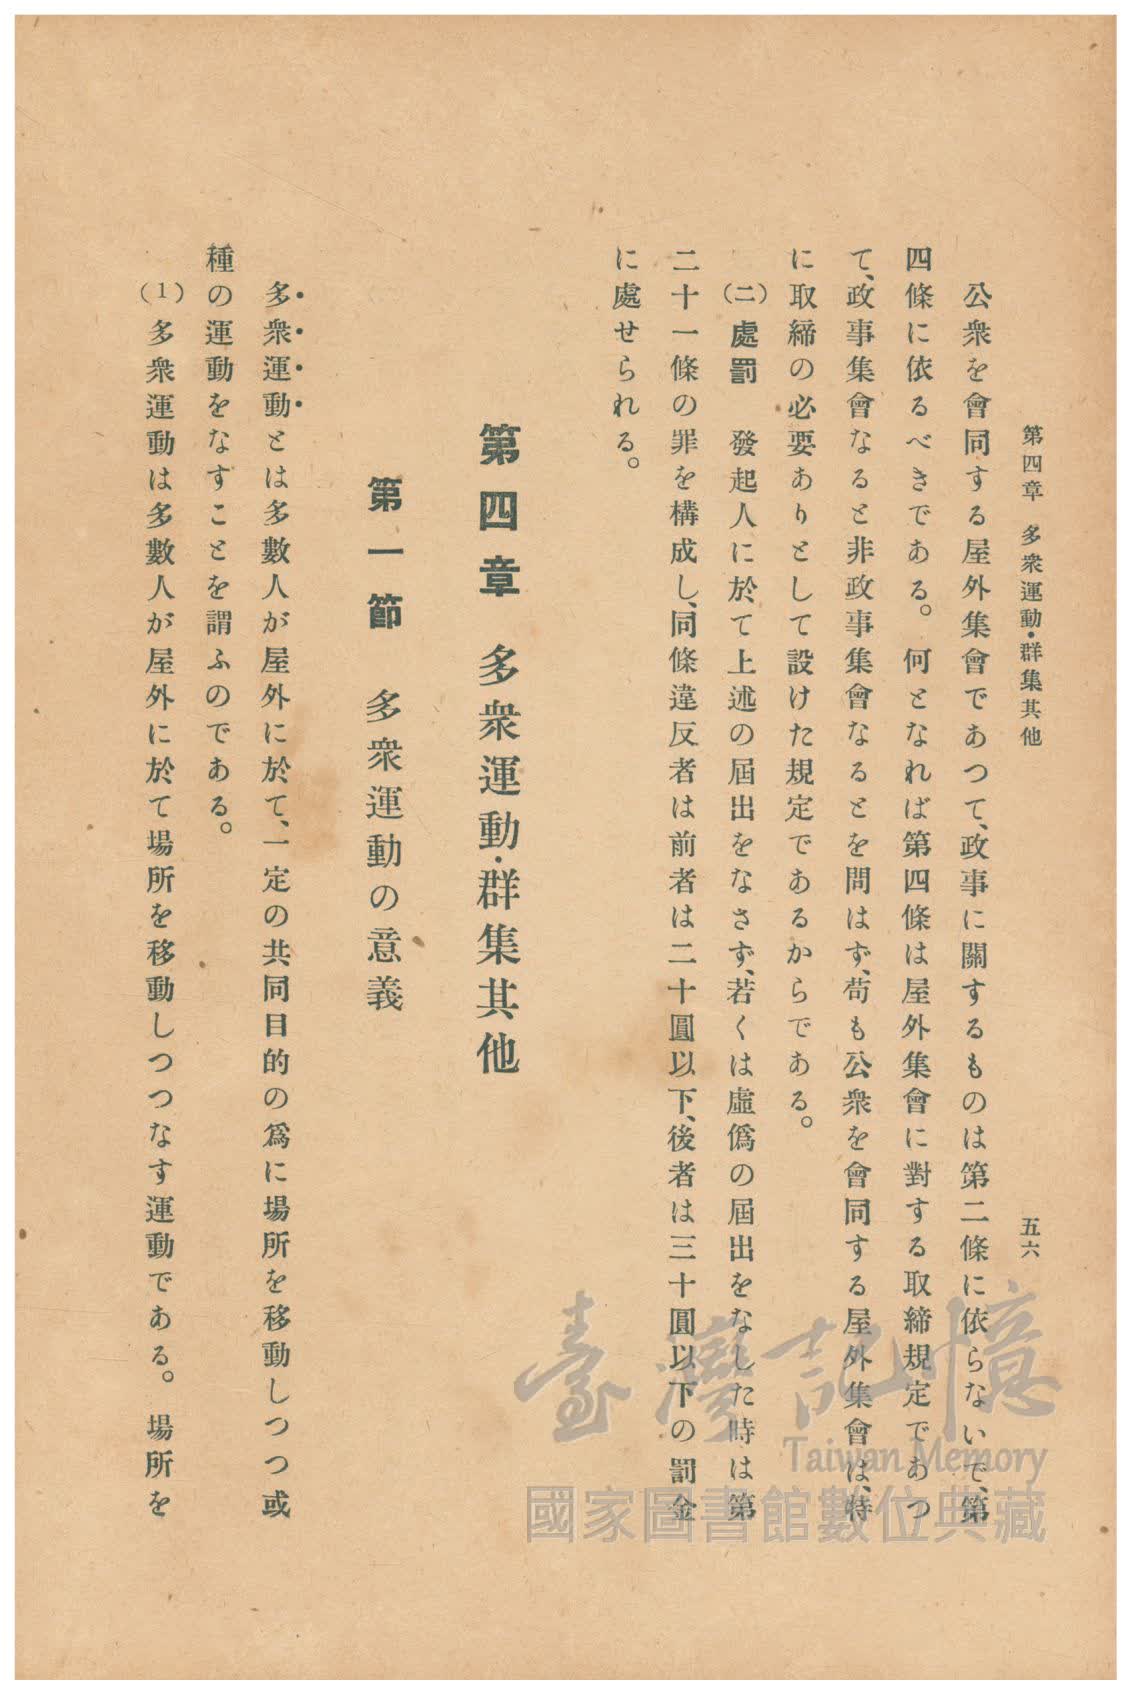 第四章　多衆運動・群集其他　五六
公衆を會同する屋外集會であつて、政事に關するものは第二條に依らないで、第
四條に依るべきである。何となれば第四條は屋外集會に對する取締規定であつ
て、政事集會なると非政事集會なるとを問はず、苟も公衆を會同する屋外集會は、特
に取締の必要ありとして設けた規定であるからである。
(二)處罰　發起人に於て上述の屆出をなさず、若くは虛僞の屆出をなした時は第
二十一條の罪を構成し、同條違反者は前者は二十圓以下、後者は三十圓以下の罰金
に處せられる。
第四章　多衆運動・群集其他
第一節　多衆運動の意義
多衆運動とは多數人が屋外に於て、一定の共同目的の爲に場所を移動しつつ或
種の運動をなすことを謂ふのである。
(1)多衆運動は多數人が屋外に於て場所を移動しつつなす運動である。場所を
臺灣記憶
Taiwan Memory
國家圖書館數位典藏